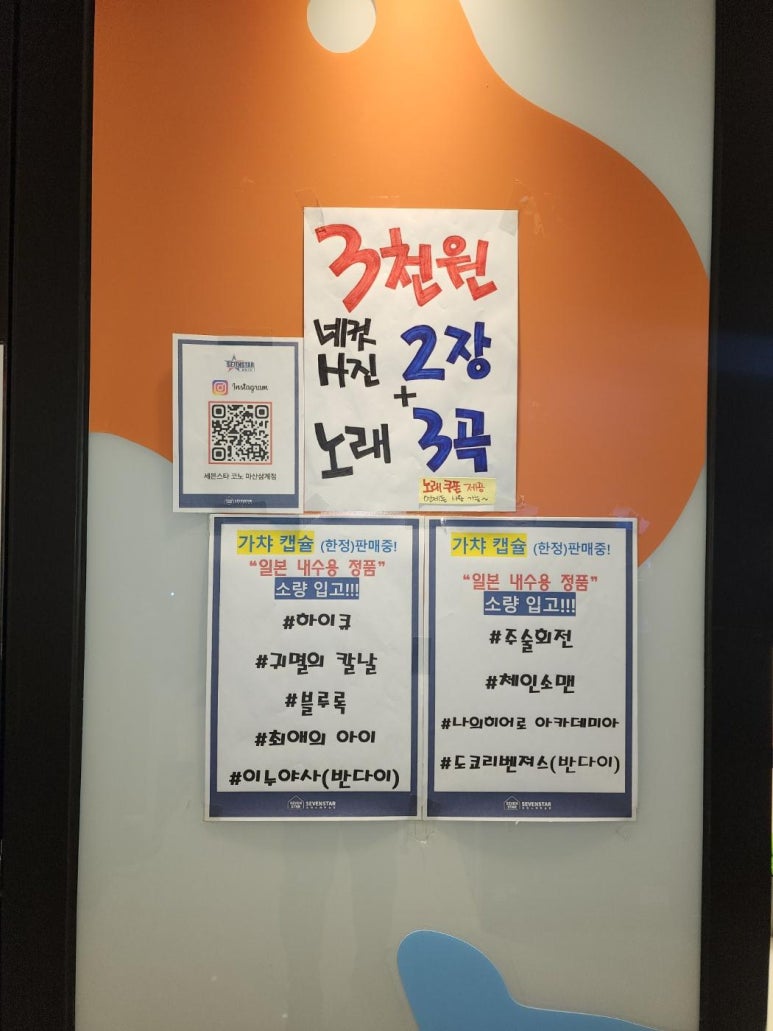 3천원
네컷
사진
2장
+
노래
3곡
노래쿠폰 제공
SEVENSTAR
Instagram
세븐스타 코노 마산삼계점
가챠 캡슐 (한정)판매중!
“일본 내수용 정품”
소량 입고!!!
#하이큐
#귀멸의 칼날
#블루록
#최애의 아이
#이누야사(반다이)
SEVEN STAR SEVENSTAR
가챠 캡슐 (한정)판매중!
“일본 내수용 정품”
소량 입고!!!
#주술회전
#체인소맨
#나의히어로 아카데미아
#도쿄리벤져스(반다이)
SEVEN STAR SEVENSTAR